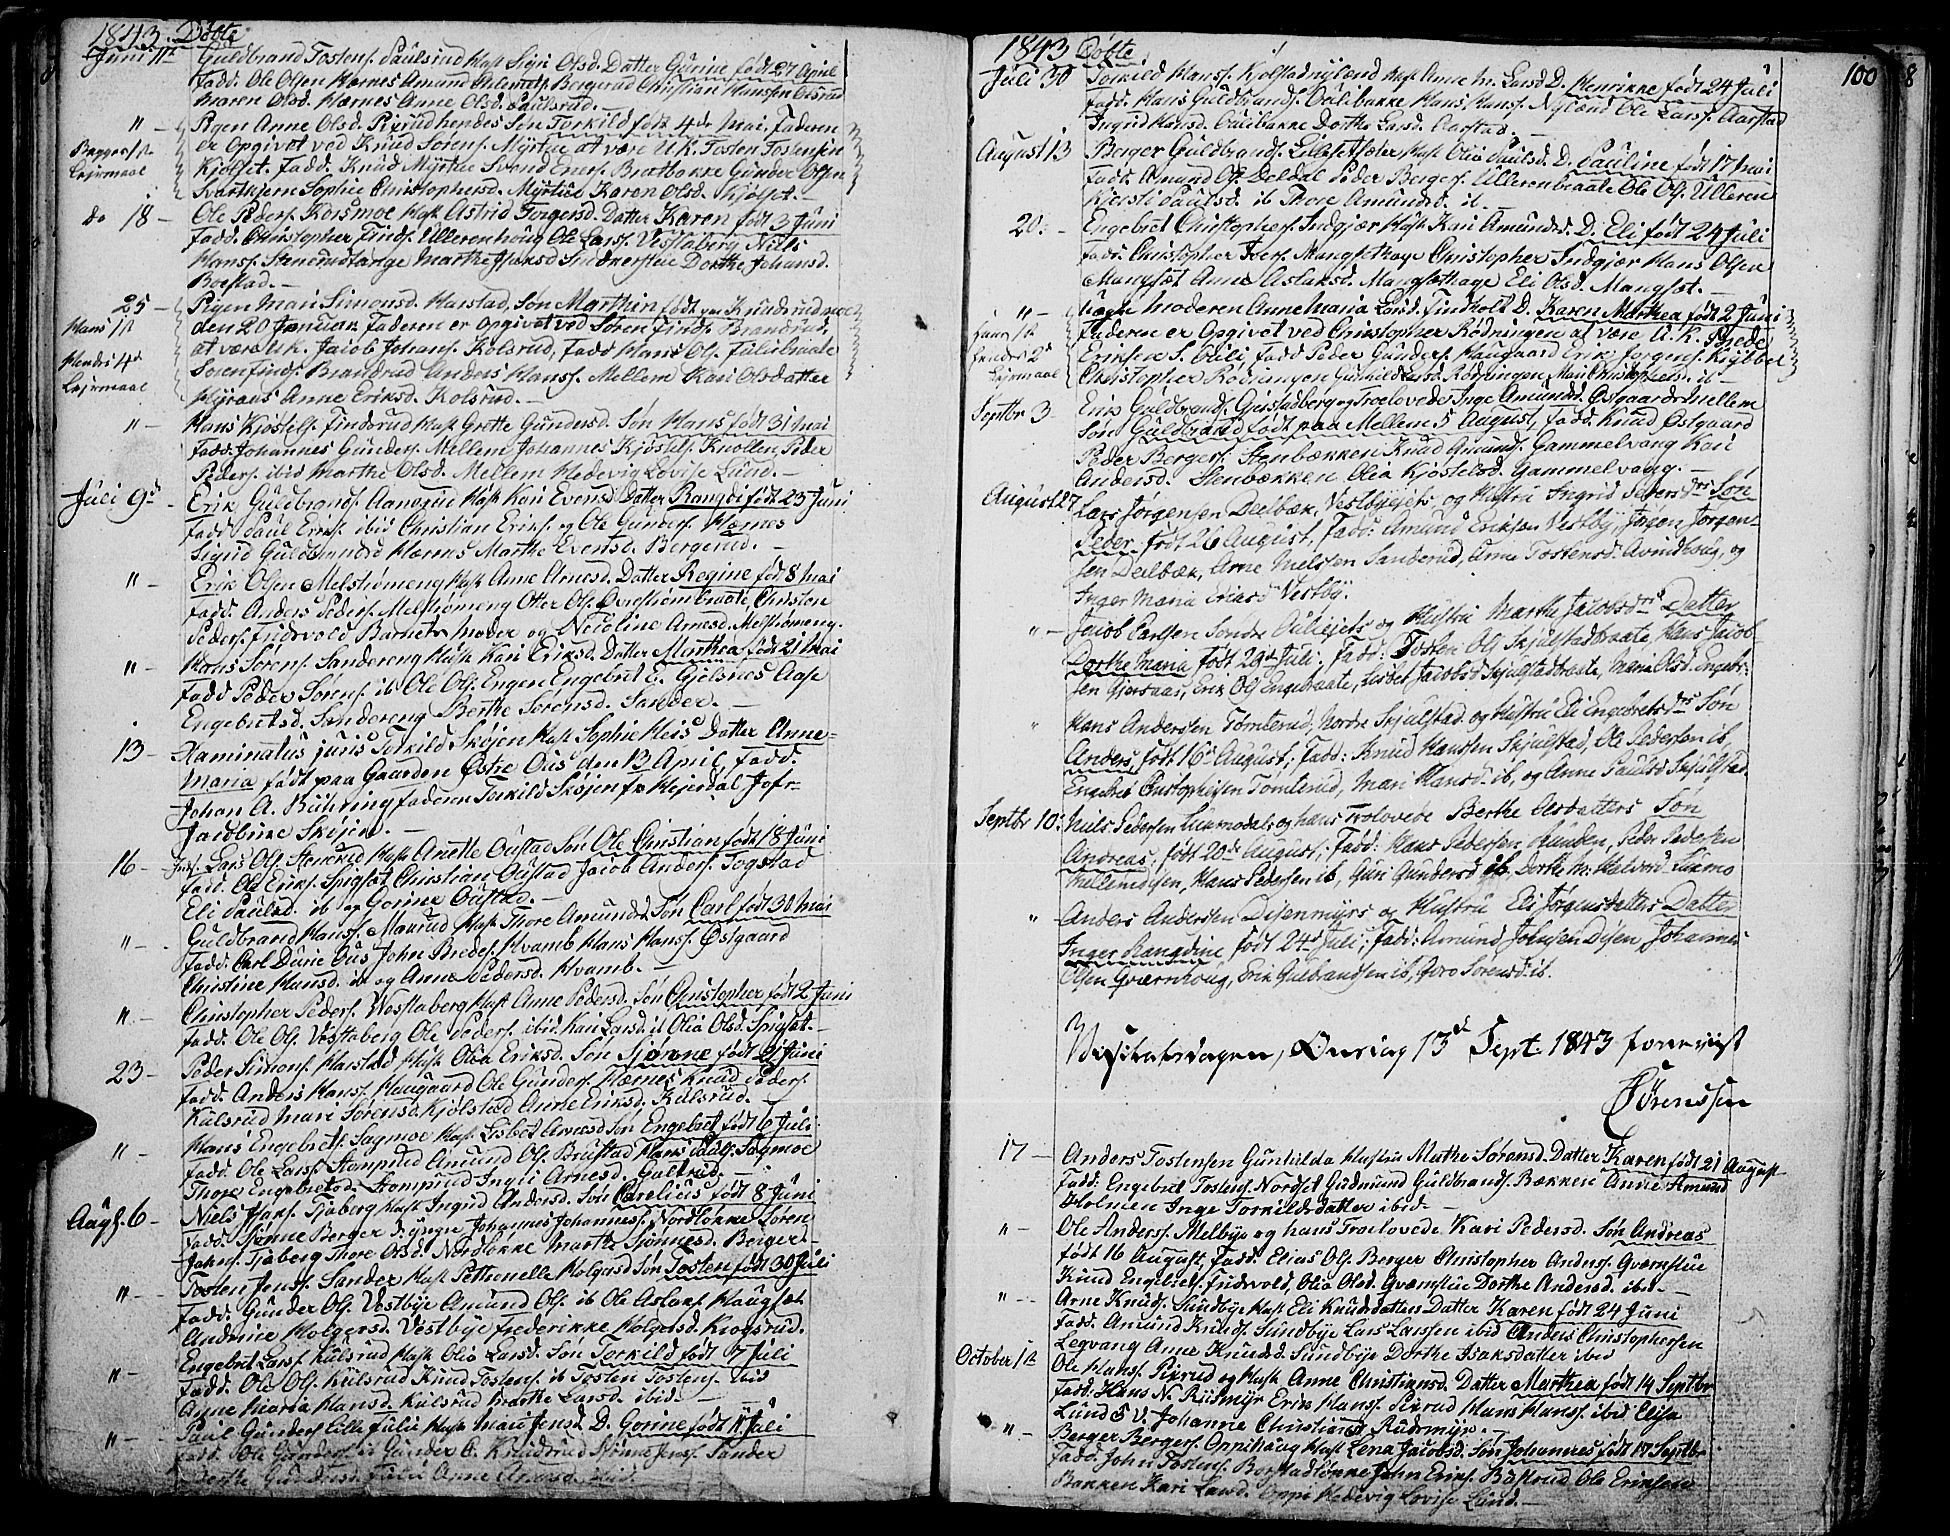 1843. Døbte
Juni 11te Guldbrand Tostens. Paulsrud Hust Sigri Olsd. Datter Gurine født 27 April
Fadd. Ole Olsen Hærnes Amund Bergerud Christian Hansen Olsrud
Maren Olsd. Hærnes Anne Olsd. Paulsrud.
" - Pigen Anne Olsd. Pixrud hendes Søn Torkild født 4de Mai. Faderen
er Opgivet ved Knud Sørens. Myrtue at være U.K. Tosten Tostensen
Kjølset. Fadd. Knud Myrtue Svend Eners. Bratbakke Gunder Olsen
Svartkjern Sophie Christophersd. Myrtue Karen Olsd. Kjølset.
Lejermaal
do 18 - Ole Peders. Korsmoe Hust Astrid Torgersd. Datter Karen født 3 Juni
Fadd. Christopher Finds. Ullerenhoug Ole Larss. Vestaberg Nills
Hans. Stenerudlarge Marthe Dorthe Johansd.
Boestad.
25 - Pigen Mari Simonsd. Harstad, Søn Marthin født paa Knudsrudmoe
den 20 Januar Faderen er Opgivet ved Søren Finds. Brandrud,
at være U.K. Jacob Johans. Kolsrud, Fadd Hans Ols. Fulubraate
Søren Finds. Brandrud Anders Hans. Mellem Kari Olsdatter
Myrads Anne Eriksd. Kolsrud.
Lejermaal
" Hans Kjøstels. Findsrud Hust Grethe Gundersd. Søn Hans født 31 Mai
Fadd. Johannes Gunders. Mellem Johannes Kjøstels. Knollen Peder
Peders. ibid Marthe Olsd. Mellem Hedevig Lovise Lund.
Juli 9d Erik Guldbrands. Aanerud Hust Kari Evensd. Datter Rangdi født 23 Juni
Fadd Paul Eriks. ibid Christian Eriks. og Ole Gunders. Hærnes
Sigrid Guldbrandsd Hærnes Marthe Evensd. Bergerud.
" - Erik Olsen Melstrømeng Hust Anne Arnesd. Datter Regine fød 8 Mai
Fadd. Anders Peders. Melstrømeng Otter Ols. Øvrestrømbraate, Christen
Peders. Fridsvold Barnets Moder og Nicoline Arnesd. Melstrømeng.
" - Hans Sørens. Sandereng Hust Kari Eriksd. Datter Marthea født 21 Mai
Fadd Peder Sørens. ib Ole Ols. Engen Engebret E. Gjelsnes Aase
Engebretsd. Sandereng Berthe Sørensd. Sander.
13 - Examinatus juris Torkild Skøjen Hust Sophie Heis Datter Anne-
Maria født paa Gaarden Østre Ous den 13 April, Fadd.
Johan A. Bühring faderen Torkild Skøjen fr Hejerdal Jofr-
Jacobine Skøjen.
16 - Lars Ols. Stenerud Hust Anette Oustad Søn Ole Christian født 18 Juni
Fadd. Ole Eriks. Spigset Christian Oustad Jacob Anders. Togstad
Eli Paulsd. ib og Gorine Oustad.
" - Guldbrand Hans. Maurud Hust Thore Amundsd. Søn Carl født 30 Mai
Fadd. Carl Düne Ous John Brede. Hvamb Hans Hans. Østgaard
Christine Hansd. ib og Anne Pedersd. Hvamb.
" - Christopher Peders. Vestaberg Hust Anne Pedersd. Søn Christopher født 2 Juni
Fadd. Ole Ols. Vestaberg Ole Peders. ibid. Kari Larsd. ib Olia Olsd. Spigset.
23 - Peder Simons. Harstad Hust Olia Eriksd. Søn Sjønne født 21 Juni
Fadd. Anders Hans. Haugaard Ole Gunders. Hærnes Knud Peders.
Kulsrud Mari Sørensd. Kjølstad Anne Eriksd. Kulsrud.
" - Hans Engebrets. Sagmoe Hust Lisbet Arnesd Søn Engebret født 6 Juli
Fadd. Ole Larss. Stomprud Amund Ols. Brustad Hans Sagmoe
Thore Engebretsd. Stomprud Ingli Arnesd. Gultrud.
Aug. 6 - Niels Isaks. Tjaberg Hust Ingrid Andersd. Søn Carelius født 8 Juni
Fadd. Sjønne Berger d. yngre Johannes Johanness. Nordløkke Søren
Johns. Tjaberg Thore Olsd. Nordløkke Marthe Sjønnesd. Berger.
" - Tosten Jens. Sander Hust Petronelle Holgersd Søn Tosten født 30 Juli
Fadd. Gunder Ols. Vestbye Amund Ols. ib Ole Aslaks. Haugset
Andrine Holgersd. Vestbye Frederikke Holgersd. Krogsrud.
" - Engebret Larss. Kulsrud Hust Olia Larsd. Søn Torkild født 7 Juli
Fadd. Ole Ols. Kulsrud Knud Tostens. ib Tosten Tostens. ibid
Anne Maria Hansd. Kulsrud Larsd. ibid.
" - Paul Gunders. Lille Fulu Hust Mari Jensd. D. Gorine født 11 Juli
Fadd. Ole Gunders. ib Gunder O. Knudsrud Sjønne Jens. Sander
Berthe Gundersd. Fulu Anne Arnesd. ibid.
1843 Døbte
100
Juli 30 Torkild Hans. Kjølstadnyland Hust Anne M. LarsD. D. Henrikke født 24 Juli
Fadd. Hans Guldbrands. Oulibakke Hans Hans. Nyland Ole Larss. Aarstad
Ingrid Hansd. Oulibakke Dorthe Larsd. Aarstad.
August 13 Berger Guldbrands. Lillesetsæter Hust Olia Paulsd. D. Pauline født 17 Mai
Fadd. Amund Ols. Deldal Peder Bergers. Ullerenbraate Ole Ols. Ulleren
Kjersti Paulsd. ib Thore Amundsd. ib.
20. - Engebret Christophers. Indgjær Hust Kari Amundsd. D. Eli født 24 Juli
Fadd. Christopher Ivers. Mangsethage Christopher Indgjær Hans Olsen
Mangset Anne Aslaksd. Mangsethage Eli Olsd. Mangset.
" - Moderen Anne Maria Larsd. Findholt D. Karen Marthea født 2 Juni
Faderen er Opgivet ved Christopher Rødningen at være U.K. Brede
Eriksen S. Ouli, Fadd Peder Gunders. Haugaard Erik Jorgens. Kigebøl
Christopher Rødningen Gunhild Larsd. Rødningen Mari Christophersd. ib
Lejermaal
Septbr 3 - Erik Guldbrands. Gjerstadberg og Troelovede Inge Amundsd. Østgaards Mellem
Søn Guldbrand født paa Mellem 5 August, Fadd. Knud Østgaard
Peder Bergers. Stenbækken Knud Amunds. Gammelvang Kari
Andersd. Stenbækken Olia Kjøstelsd. Gammelvang.
August 27 Lars Jørgensen Deelbæk, Vestbyeiets og Hustru Ingrid Peders drs Søn
Peder født 26 August, Fadd: Amund Eriksen Vestby, Jørgen Jørgen-
sen Deelbæk, Arne Nielsen Sanderud, Anne Tostensd. Avindhoug, og
Inger Maria Eriksd Vestby.
" - Jacob Carlsen Søndre Ouliejets og Hustru Marthe Jacobsdrs Datter
Dorthe Maria, født 29de Juli; Fadd: Tosten Ols Skjulstadbraate, Hans Jacob-
sen Gjersaas, Erik Ols Engebraate, Lisbet Jacobsd Skjulstadbraate, Maria Olsd. Engebr:
" Hans Andersen Tomterud, Nordre Skjulstad og Hustru Eli Engebrets drs Søn
Anders, født 16de August; Fadd: Knud Hanssen Skjulstad, Ole Pedersen ib,
Engebret Christophersen Tomterud, Mari Hansd. ib, og Anne Paulsd Skjulstad
Septbr 10: Niels Pedersen Liermodal og hans Trolovede Berthe Olsdatters Søn
Andreas, født 20de August; Fadd: Hans Pedersen Hunden, Peder Pedersen
Mellemdisen, Hans Pedersen ib, Guri Gundersd ib, Dorthe M. Halvord. Liermo
" Anders Andersen Disenmyrs og Hustru Eli Jørgensdatters Datter
Inger Rangdine født 24de Juli; Fadd: Amund Johnsen Disen Johannes
Olsen Qværnhoug, Erik Gulbrandsen ib, Goro Sørensd: ib.
Visitatsdagen, Onsdag 13de Sept. 1843 foreviist
Sörenssen
17 - Anders Tostensen Gunhilda Hustru Marthe Sørensd. Datter Karen født 21 August
Fadd. Engebret Tostens. Nordset Gudmund Guldbrands. Bækken Anne Amund
Holmen Inge Torkildsdatter ibid.
" - Ole Anders. Melbye og hans Troelovede Kari Pedersd. Søn Andreas
født 16 August, Fadd. Elias Ols. Berger Christopher Anders. Qværnstue
Knud Engebrets. Fridsvold, Olia Olsd. Qværnstue Dorthe Andersd. ibid.
" - Arne Knuds. Sundbye Hust Eli Knudsdatters Datter Karen født 24 Juni
Fadd. Amund Knuds. Sundbye Lars Larssen ibid Anders Christophersen
Legvang Anne Knudsd. Sundbye Dorthe Isaksdatter ibid
October 1te Ole Hans. Pixrud og Hust Anne Christiansd. Datter Marthea født 14 Septbr
Fadd. Hans N. Rudsmyr Erik Hans. Pixrud Hans Hans. ibid Elise
Lund S V. Johanne Christiansd Rudsmyr.
" - Berger Bergers. Oppihaug Hust Lena Jacobsd. Søn Johannes født 17 Septbr
Fadd. John Tostens. Borstadlønne John Eriks. Basterud Ole Eriksen
Bakken Kari Larsd. Oppi Hedevig Lovise Lund.